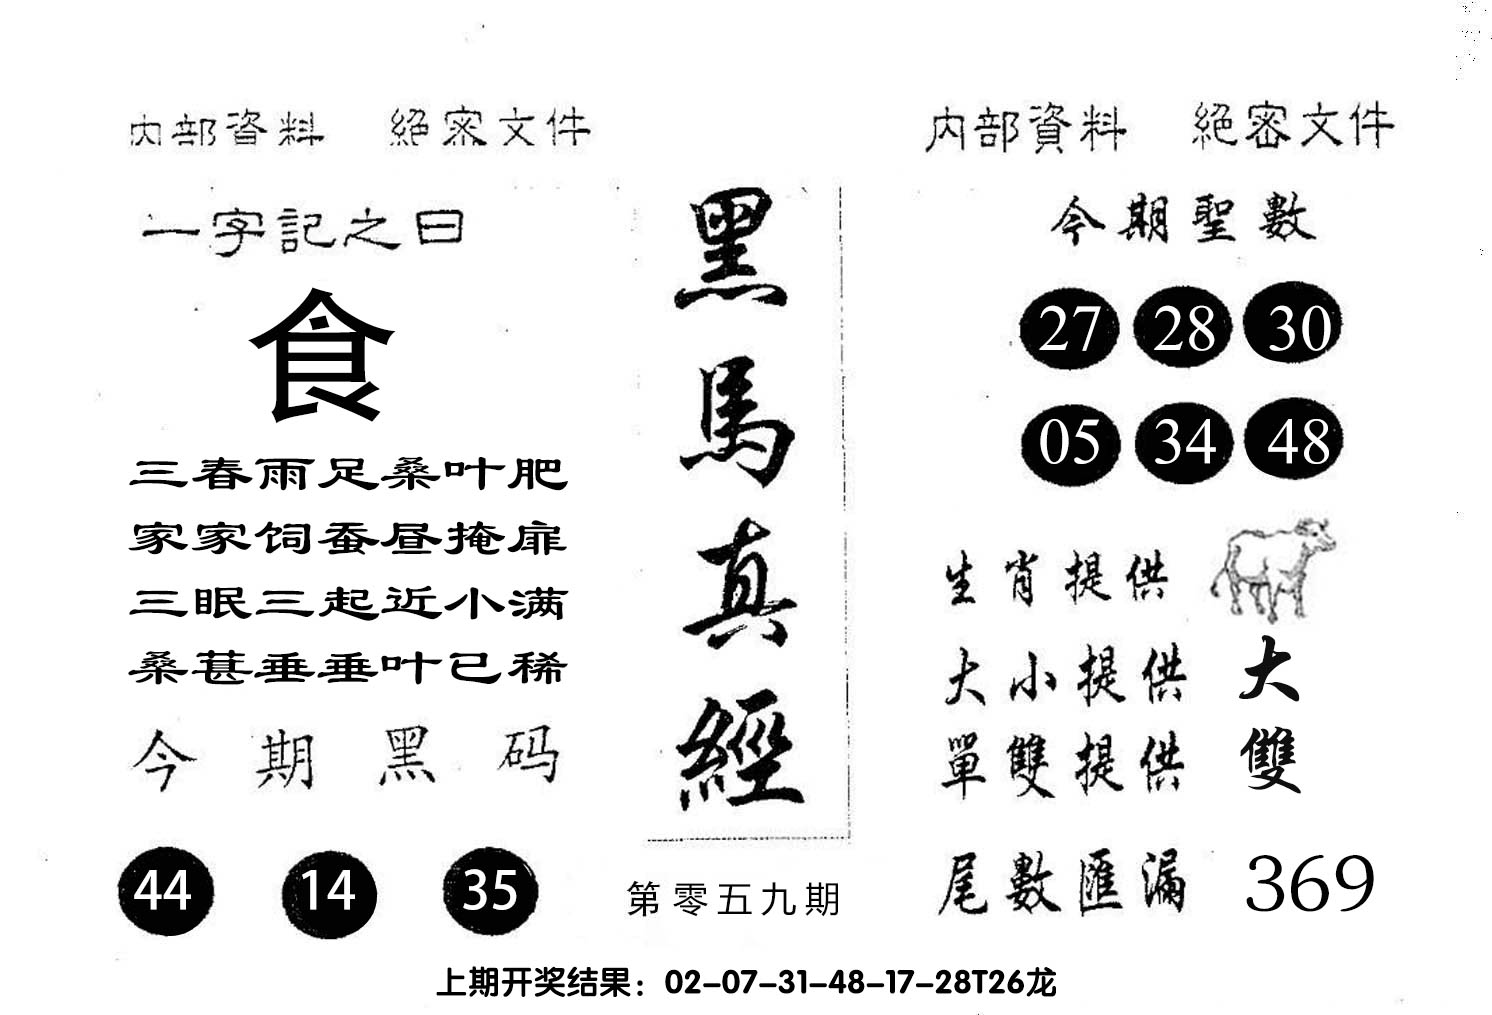 内部資料 絕密文件
一字記之曰
食
三春雨足桑叶肥
家家饲蚕昼掩扉
三眠三起近小满
桑葚垂垂叶已稀
今期黑码
44 14 35
黑馬真經
第零五九期
内部資料 絕密文件
今期聖數
27 28 30
05 34 48
生肖提供
大小提供 大
單雙提供 雙
尾數匯漏 369
上期开奖结果：02-07-31-48-17-28T26龙